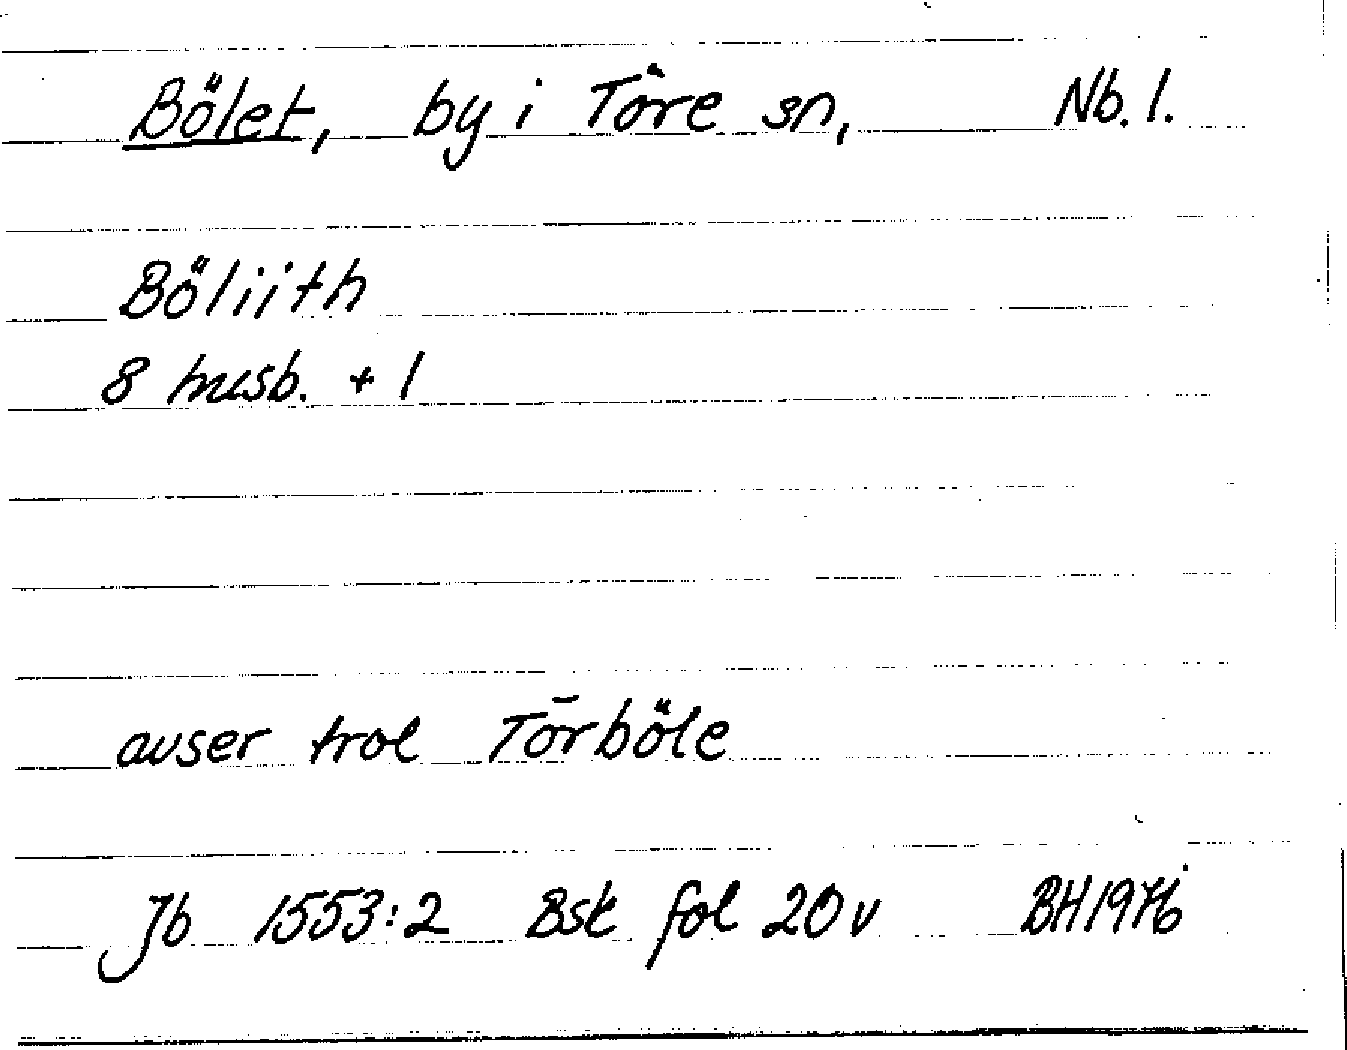 Bölet, by i Töre sn, Nb. l.
Böliith
8 husb. + 1
avser trol Törböle
Jb 1553:2 Bsk fol 20v BH 1976